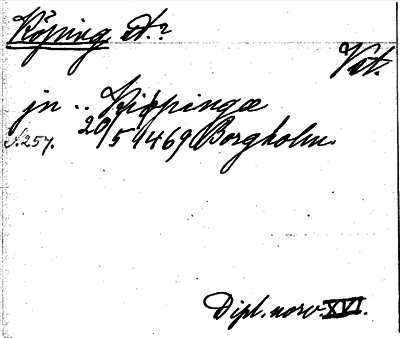 Köping St.?
Vst.
jn .. Kiøpingæ
S. 257. 20/5 1469 Borgholm.
Dipl. norv. XVI.